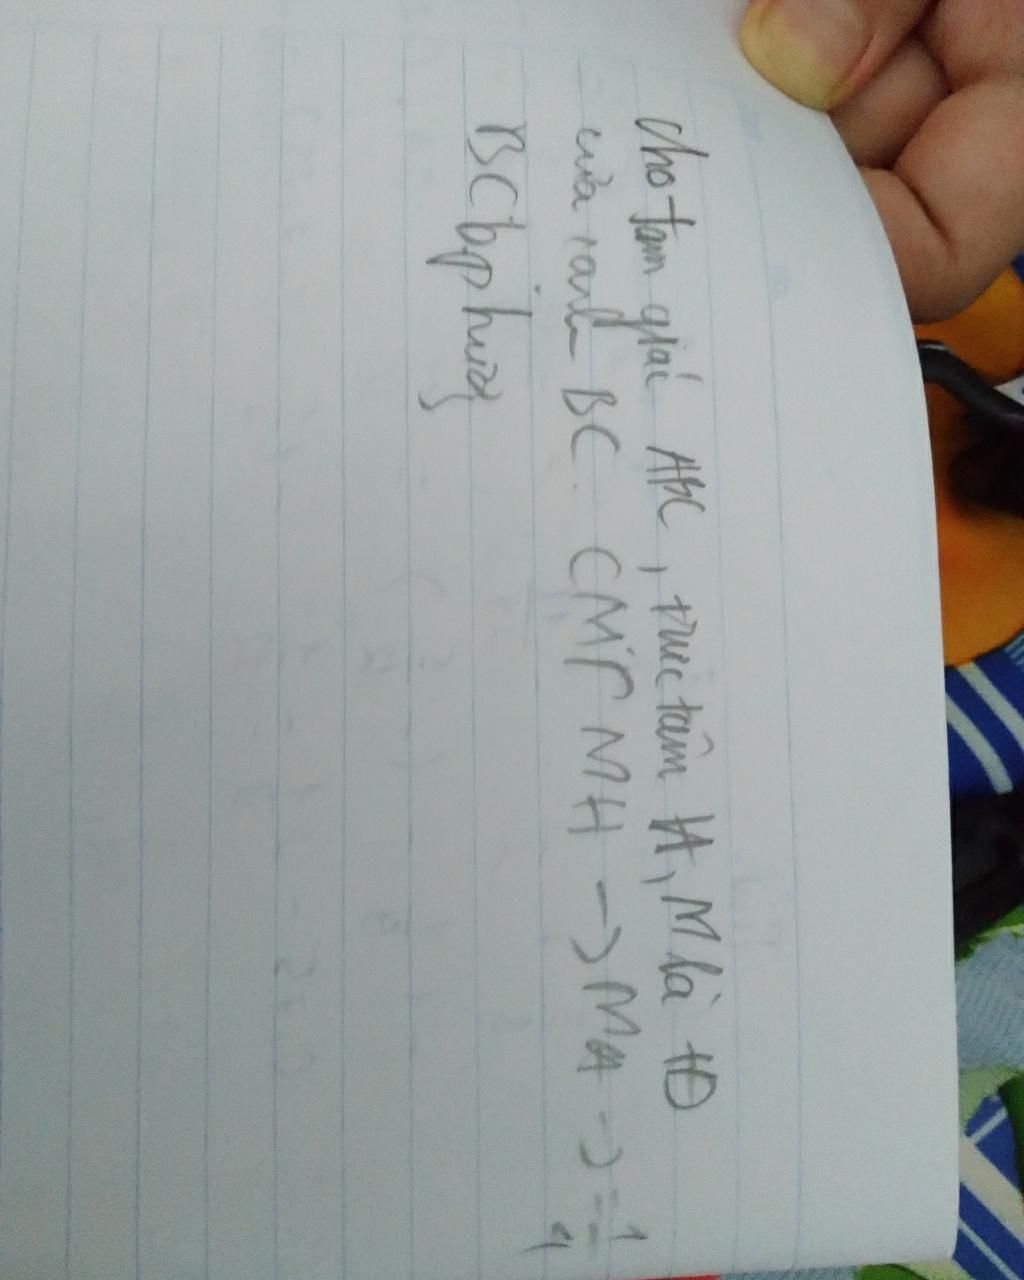 Cho tam giác ABC, trực tâm H, M là TĐ
của cạnh BC. CMr MH -> MA -> = 1/4
BC bìphươg